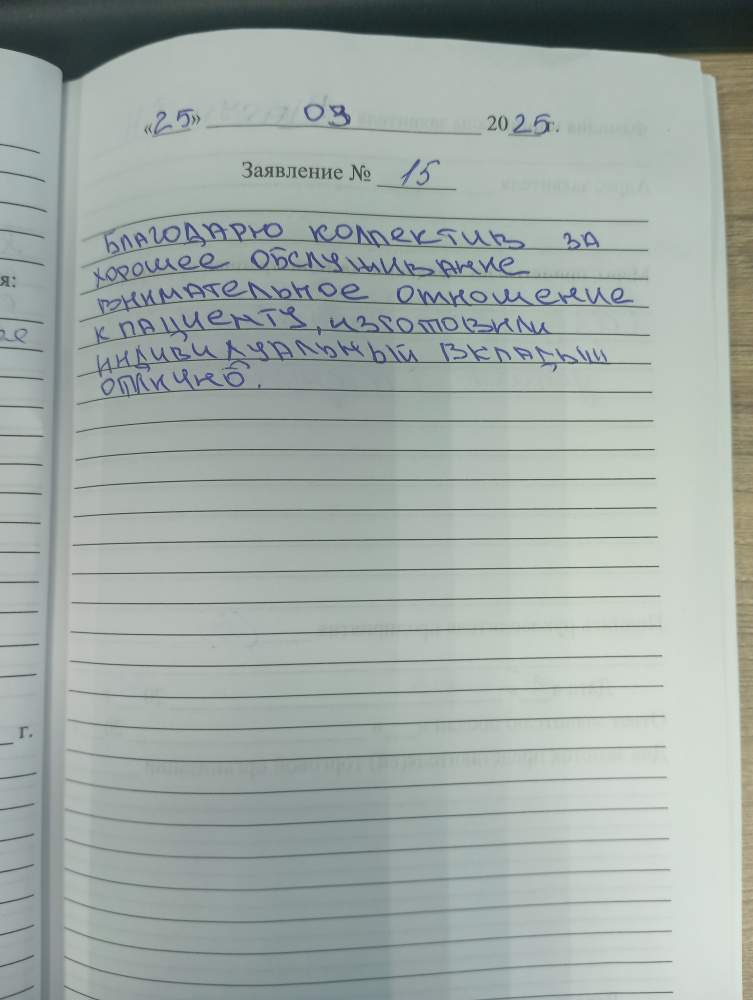 «25» 03 2025г.
Заявление № 15
БЛАГОДАРЮ КОЛЛЕКТИВ ЗА
ХОРОШЕЕ ОБСЛУЖИВАНИЕ
ВНИМАТЕЛЬНОЕ ОТНОШЕНИЕ
К ПАЦИЕНТУ, ИЗГОТОВИЛИ
ИНДИВИДУАЛЬНЫЙ ВКЛАДЫШ
я:
г.